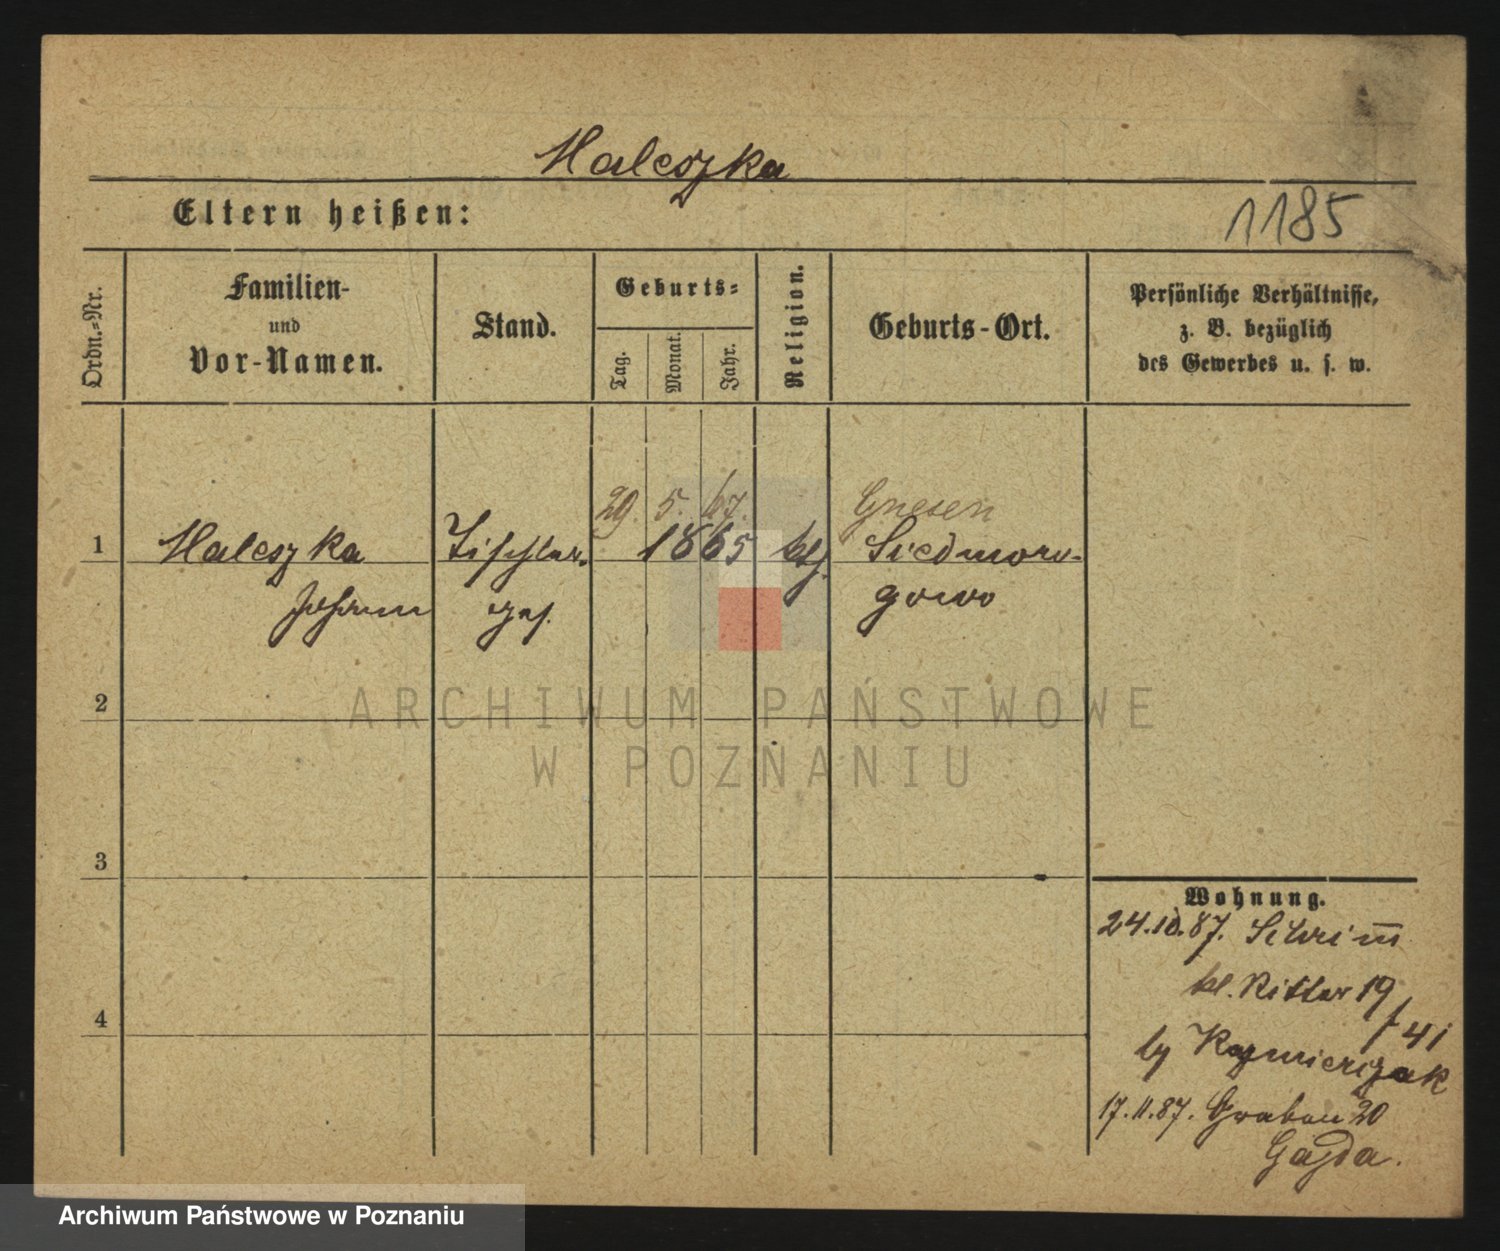 Haleszka
Eltern heißen:
1185
Ordn.-Nr.
Familien-
und
Vor-Namen.
Stand.
Geburts-
Tag.
Monat.
Jahr.
Religion.
Geburts-Ort.
Persönliche Verhältnisse,
z. B. bezüglich
des Gewerbes u. s. w.
29. 5. 67.
Gnesen
1
Haleszka
Tischler-
1865
ktl.
Siedmoro-
Johann
ges.
gowo
ARCHIWUM PAŃSTWOWE
W POZNANIU
2
3
4
Wohnung.
24.10.87. Schrimm
kl. Ritter 19/41
by Kazmierczak
17.11.87. Graben 20
Gajda.
Archiwum Państwowe w Poznaniu